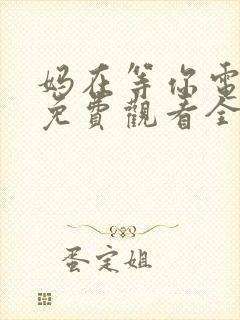 妈在等你電
免費觀看全
蛋定姐